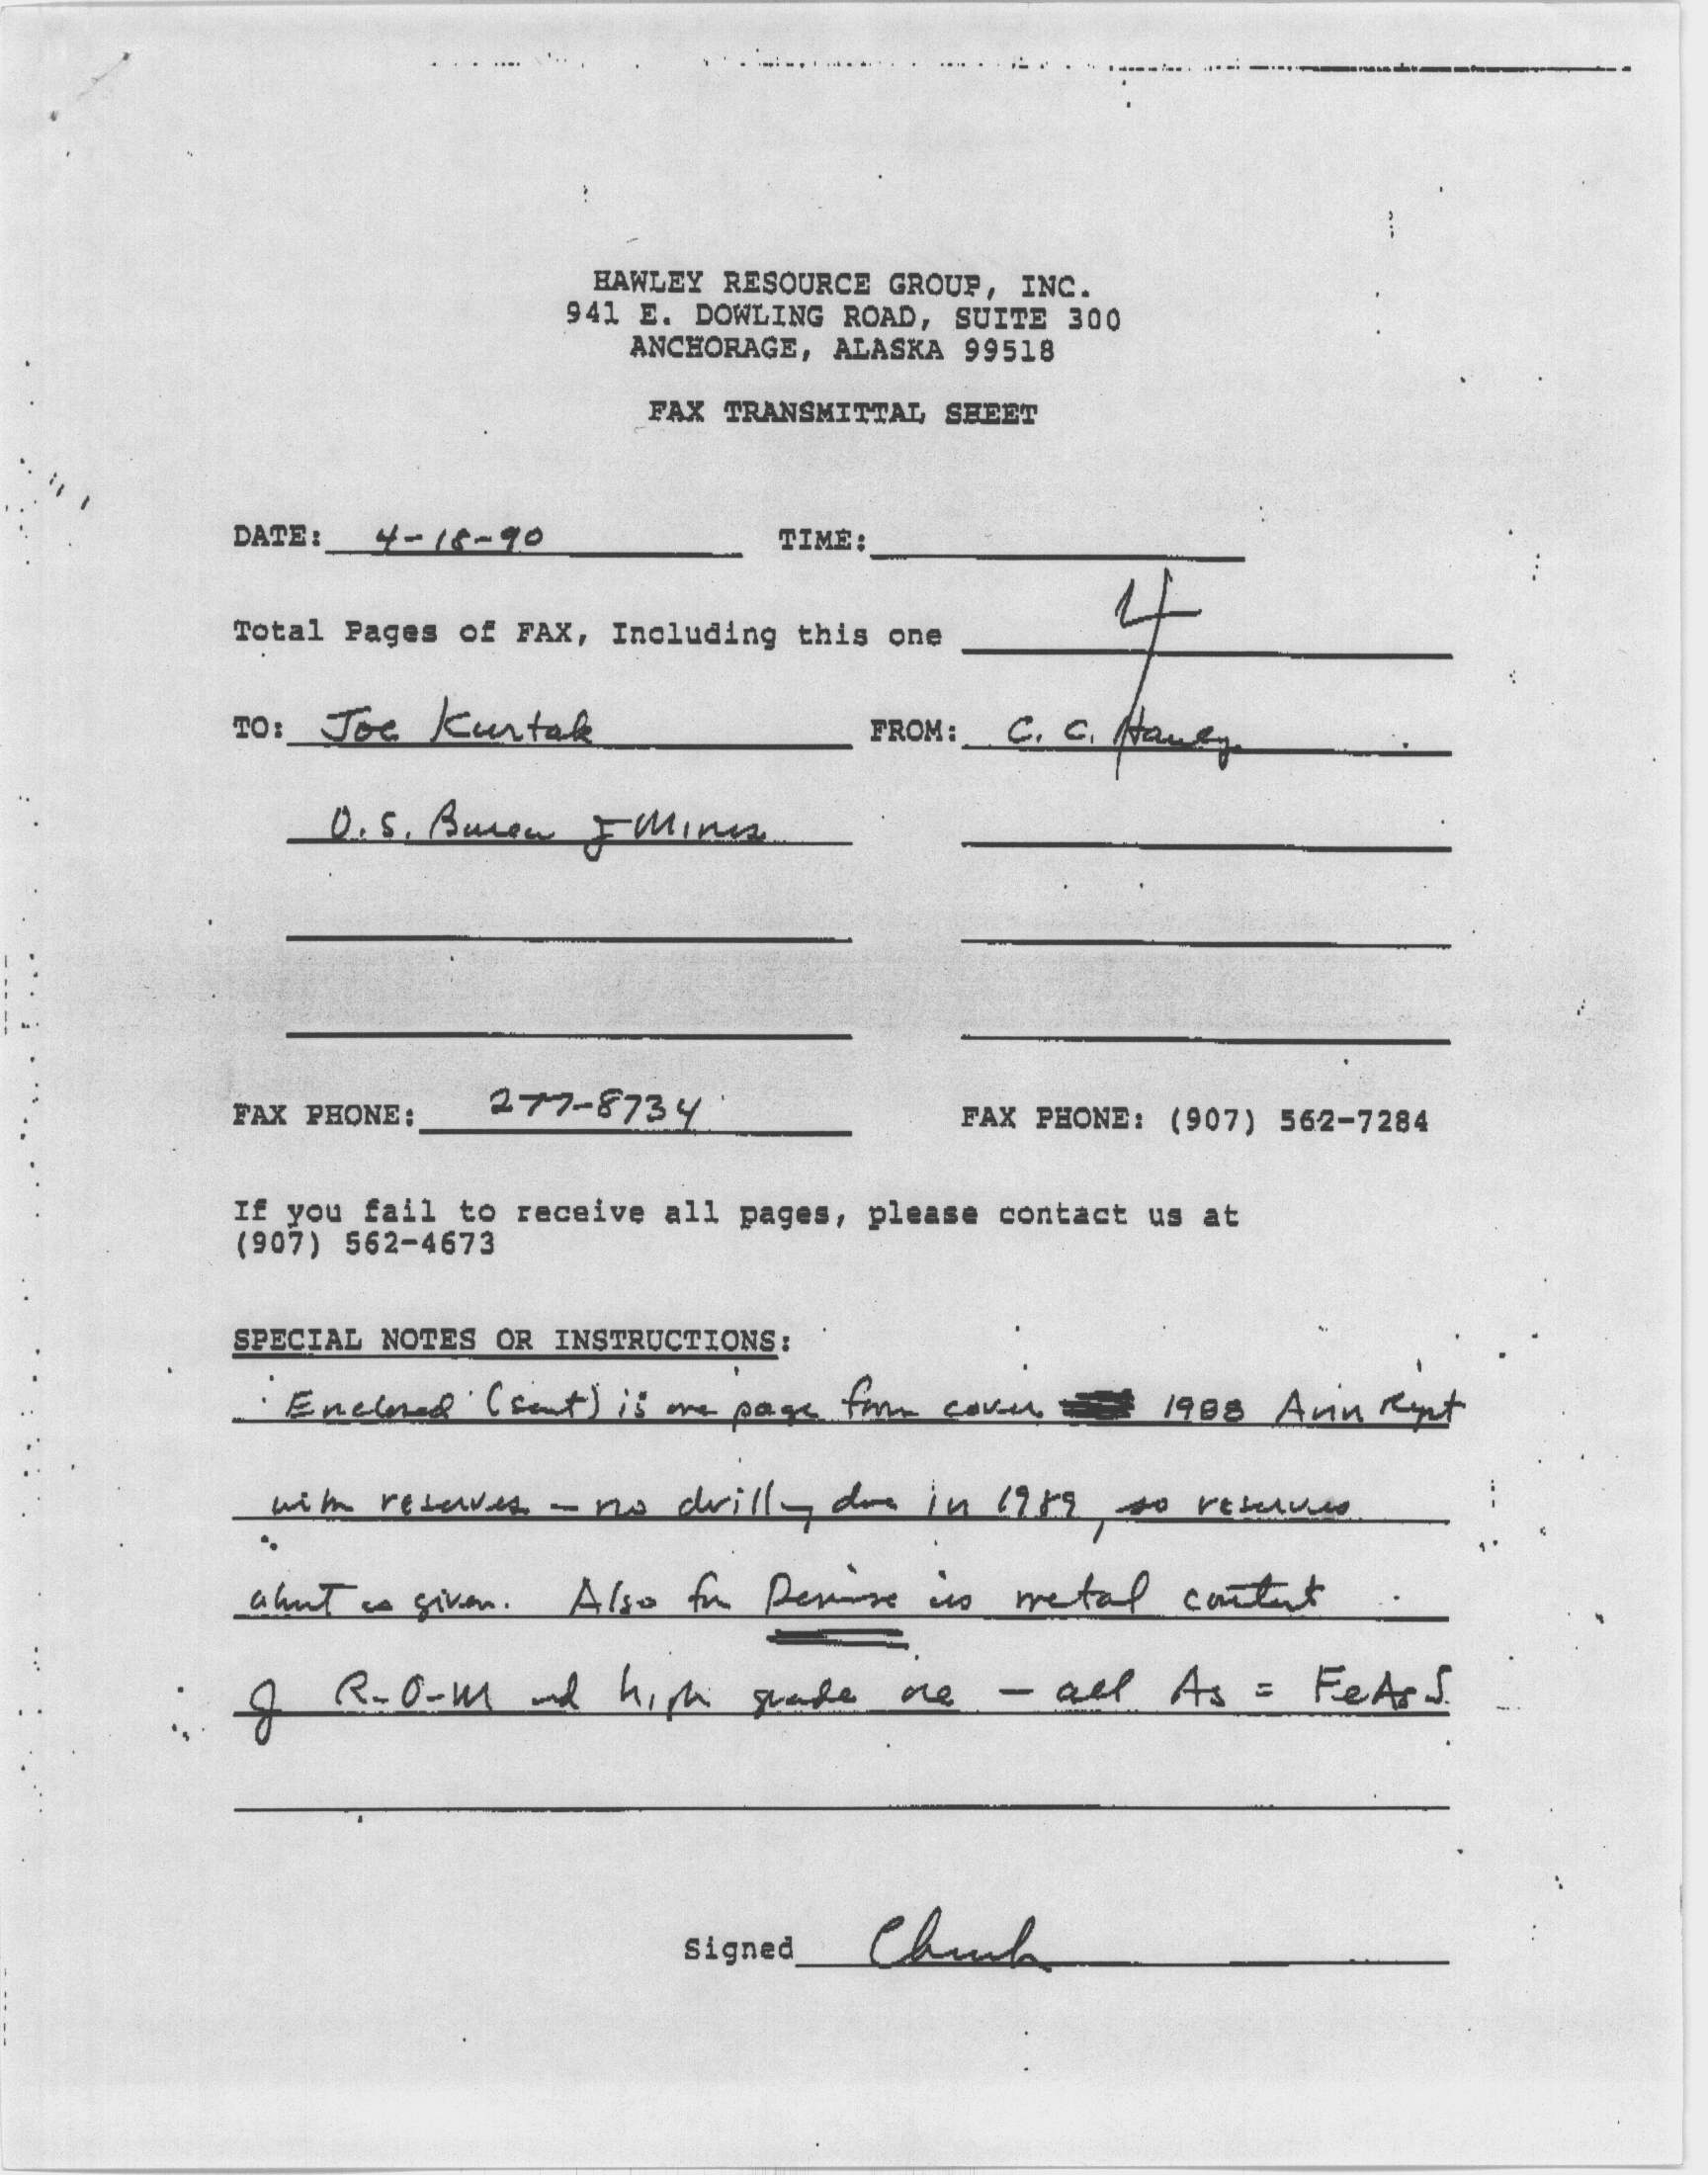 HAWLEY RESOURCE GROUP, INC.
941 E. DOWLING ROAD, SUITE 300
ANCHORAGE, ALASKA 99518
FAX TRANSMITTAL SHEET
DATE: 4-18-90 TIME:
Total Pages of FAX, Including this one 4
TO: Joe Kurtak FROM: C. C. Hawley
U.S. Bureau of Mines
FAX PHONE: 277-8734 FAX PHONE: (907) 562-7284
If you fail to receive all pages, please contact us at
(907) 562-4673
SPECIAL NOTES OR INSTRUCTIONS:
Enclosed (sent) is one page from cover 1988 Ann Rept
with reserves - no drilling done in 1989, so reserves
about as given. Also for Denise is metal content
of R-O-M and high grade ore - all As = FeAsS.
Signed Chuck